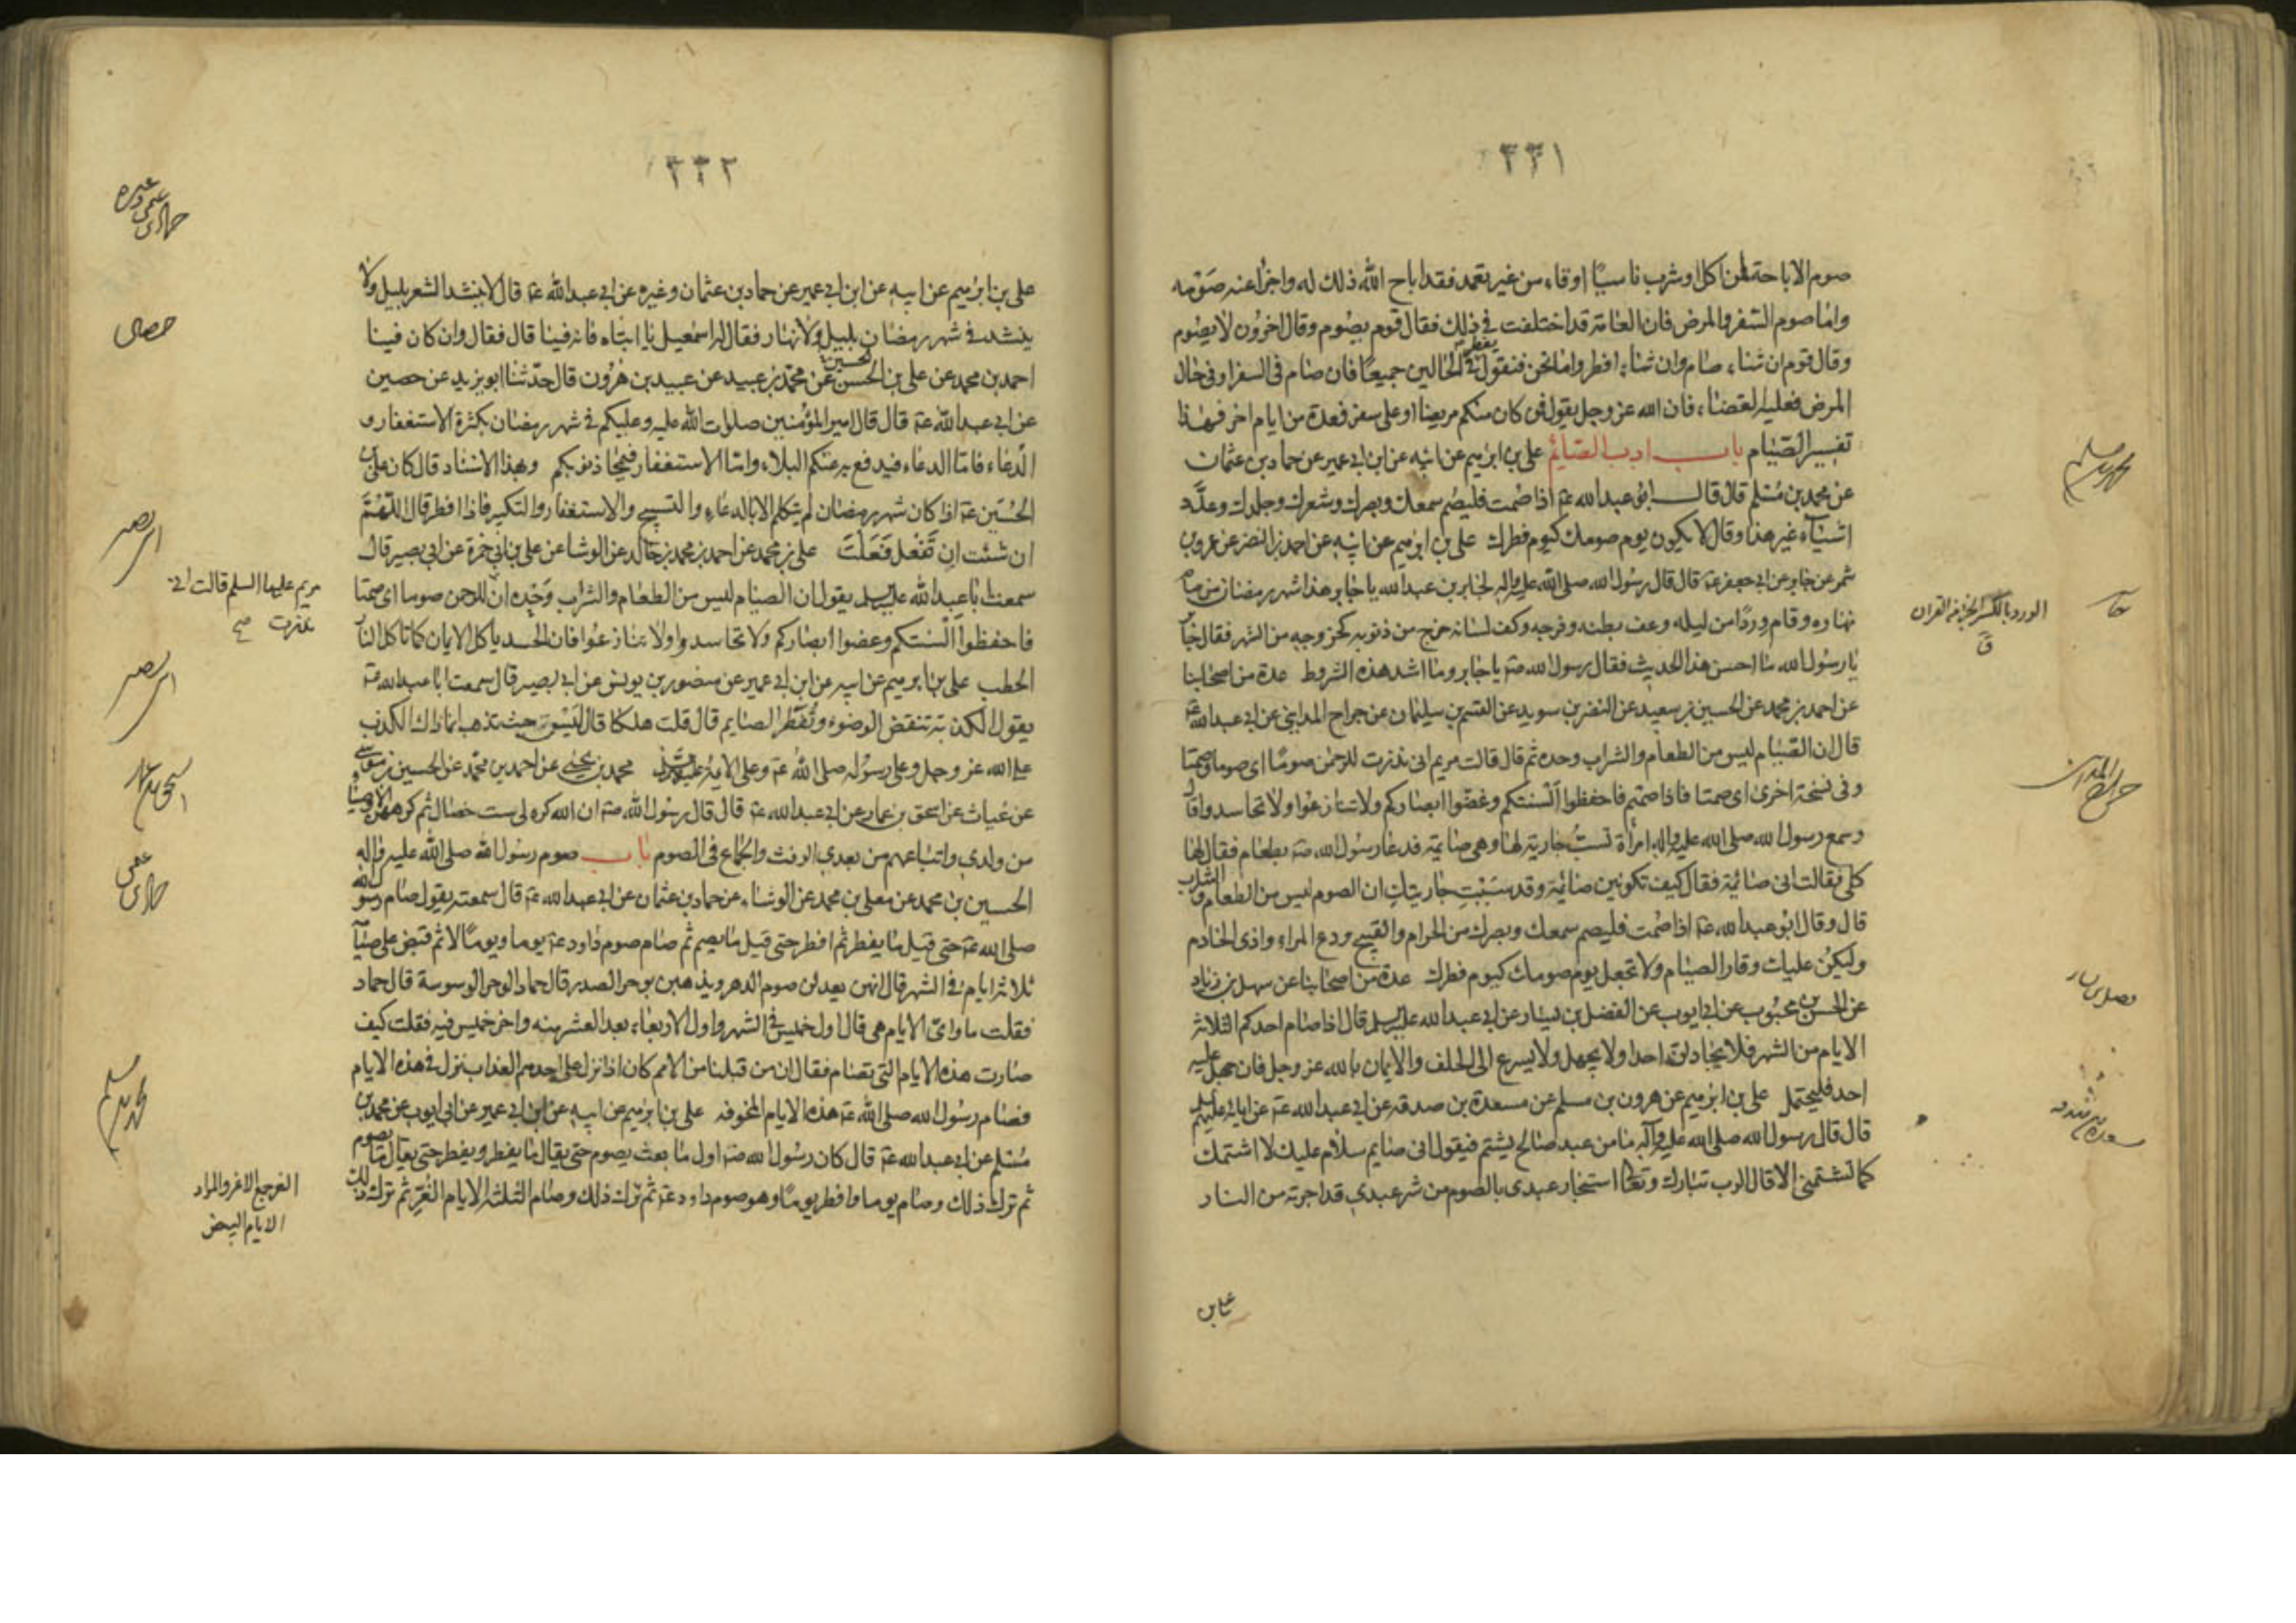 ٣٣١
صوم الاباحة لمن اكل او شرب ناسيا او قاء من غير تعمد فقد اباح الله ذلك له واجزأ عنه صومه
واما صوم السفر والمرض فان العامة قد اختلفت في ذلك فقال قوم يصوم وقال اخرون لا يصوم
وقال قوم ان شاء صام وان شاء افطر واما نحن فنقول يفطر في الحالين جميعا فان صام في السفر او في حال
المرض فعليه القضاء فان الله عز وجل يقول فمن كان منكم مريضا او على سفر فعدة من ايام اخر فهذا
تفسير الصيام باب ادب الصائم علي بن ابرهيم عن ابيه عن ابن ابي عمير عن حماد بن عثمان
عن محمد بن مسلم قال قال ابو عبد الله عة اذا صمت فليصم سمعك وبصرك وشعرك وجلدك وعدد
اشياء غير هذا وقال لا يكون يوم صومك كيوم فطرك علي بن ابرهيم عن ابيه عن احمد بن النضر عن عمرو بن
شمر عن جابر عن ابي جعفر عة قال قال رسول الله صلى الله عليه واله لجابر بن عبد الله يا جابر هذا شهر رمضان من صام
نهاره وقام وردا من ليله وعف بطنه وفرجه وكف لسانه خرج من ذنوبه كخروجه من الشهر فقال جابر
يا رسول الله ما احسن هذا الحديث فقال رسول الله صة يا جابر وما اشد هذه الشروط عدة من اصحابنا
عن احمد بن محمد عن الحسين بن سعيد عن النضر بن سويد عن القسم بن سليمان عن جراح المدايني عن ابي عبد الله عة
قال ان الصيام ليس من الطعام والشراب وحده ثم قال قالت مريم اني نذرت للرحمن صوما اى صوما وصمتا
وفي نسخة اخرى اى صمتا فاذا صمتم فاحفظوا ألسنتكم وغضوا ابصاركم ولا تنازعوا ولا تحاسدوا قال
وسمع رسول الله صلى الله عليه واله امرأة تسب جارية لها وهي صائمة فدعا رسول الله صة بطعام فقال لها
كلي فقالت اني صائمة فقال كيف تكونين صائمة وقد سببت جاريتك ان الصوم ليس من الطعام والشراب
قال وقال ابو عبد الله عة اذا صمت فليصم سمعك وبصرك من الحرام والقبيح ودع المراء واذى الخادم
وليكن عليك وقار الصيام ولا تجعل يوم صومك كيوم فطرك عدة من اصحابنا عن سهل بن زياد
عن الحسن بن محبوب عن ابي ايوب عن الفضل بن يسار عن ابي عبد الله عليه السلم قال اذا صام احدكم الثلاثة
الايام من الشهر فلا يجادلن احدا ولا يجهل ولا يسرع الى الحلف والايمان بالله عز وجل فان جهل عليه
احد فليحتمل علي بن ابرهيم عن هرون بن مسلم عن مسعدة بن صدقه عن ابي عبد الله عة عن ابايه عليهم السلم
قال قال رسول الله صلى الله عليه وآله ما من عبد صالح يشتم فيقول اني صايم سلام عليك لا اشتمك
كما تشتمني الا قال الرب تبارك وتعالى استجار عبدي بالصوم من شر عبدي قد اجرته من النار
علي بن
محمد بن مسلم
الورد بالكسر الجزء من القران
ق
جراح المداين
٣٣٢
علي بن ابرهيم عن ابيه عن ابن ابي عمير عن حماد بن عثمان وغيره عن ابي عبد الله عة قال لا ينشد الشعر بليل ولا
ينشد في شهر رمضان بليل ولا نهار فقال له اسمعيل يا ابتاه فانه فينا قال فقال وان كان فينا
احمد بن محمد عن علي بن الحسن عن محمد بن عبيد عن عبيد بن هرون قال حدثنا ابو يزيد عن حصين
عن ابي عبد الله عة قال قال امير المؤمنين صلوات الله عليه وعليكم في شهر رمضان بكثرة الاستغفار و
الدعاء فاما الدعاء فيدفع به عنكم البلاء واما الاستغفار فيمحا ذنوبكم وبهذا الاسناد قال كان علي بن
الحسين عة اذا كان شهر رمضان لم يتكلم الا بالدعاء والتسبيح والاستغفار والتكبير فاذا افطر قال اللهم
ان شئت ان تفعل فعلت علي بن محمد عن احمد بن محمد بن خالد عن الوشا عن علي بن ابي حمزة عن ابي بصير قال
سمعت ابا عبد الله عليه السلم يقول ان الصيام ليس من الطعام والشراب وحده ان للرحمن صوما اى صمتا
فاحفظوا ألسنتكم وغضوا ابصاركم ولا تحاسدوا ولا تنازعوا فان الحسد ياكل الايمان كما تاكل النار
الحطب علي بن ابرهيم عن ابيه عن ابن ابي عمير عن منصور بن يونس عن ابي بصير قال سمعت ابا عبد الله عة
يقول الكذبة تنقض الوضوء وتفطر الصايم قال قلت هلكنا قال ليس حيث تذهب انما ذلك الكذب
على الله عز وجل وعلى رسوله صلى الله عة وعلى الائمة محمد بن يحيى عن احمد بن محمد عن الحسين بن موسى
عن غياث عن اسحق بن عمار عن ابي عبد الله عة قال قال رسول الله صة ان الله كره لي ست خصال ثم كرهتهن للاوصياء
من ولدي واتباعهم من بعدي الرفث والجماع في الصوم باب صوم رسول الله صلى الله عليه واله
الحسين بن محمد عن معلى بن محمد عن الوشاء عن حماد بن عثمان عن ابي عبد الله عة قال سمعته يقول صام رسول الله
صلى الله عة حتى قيل ما يفطر ثم افطر حتى قيل ما يصم ثم صام صوم داود عة يوما ويوما لا ثم قبض على صيام
ثلاثة ايام في الشهر قال انهن يعدلن صوم الدهر ويذهبن بوحر الصدر قال حماد الوحر الوسوسة قال حماد
فقلت ما واى الايام هي قال اول خميس في الشهر واول الاربعاء بعد العشر منه واخر خميس فيه فقلت كيف
صارت هذه الايام التي تصام فقال ان من قبلنا من الامم كان اذا نزل على احدهم العذاب نزل في هذه الايام
فصام رسول الله صلى الله عة هذه الايام المخوفه علي بن ابرهيم عن ابيه عن ابن ابي عمير عن ابي ايوب عن محمد بن
مسلم عن ابي عبد الله عة قال كان رسول الله صة اول ما بعث يصوم حتى يقال ما يفطر ويفطر حتى يقال ما يصوم
ثم ترك ذلك وصام يوما وافطر يوما وهو صوم داود عة ثم ترك ذلك وصام الثلثة الايام الغر ثم ترك ذلك
حصين
ابى بصير
مريم عليها السلم قالت اني
نذرت صح
ابى بصير
اسحق بن عمار
محمد بن مسلم
الغر جمع الاغر والمراد
الايام البيض